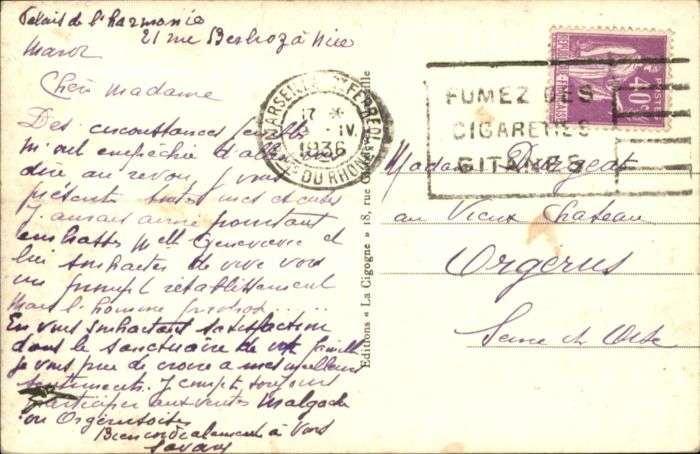 Palais de l'harmonie
21 rue Berlioz à Nice
Mardi
Chère Madame
Des circonstances
m'ont empêchée d'aller vous
dire au revoir. Je vous
présente toutes mes excuses
J'aurais aimé pourtant
embrasser Melle Geneviève et
lui souhaiter de vive voix
un prompt rétablissement
Mais l'homme propose .....
En vous souhaitant satisfaction
dans le sanctuaire de votre famille
je vous prie de croire à mes meilleurs
sentiments. Je compte toujours
participer aux ventes Malgache
ou Orgerusoises
Bien cordialement à Vous
MARSEILLE ST FERREOL
17
IV
1936
BCHES DU RHONE
FUMEZ DES
CIGARETTES
GITANES
POSTES
40c
Editions « La Cigogne » 18, rue
Madame
au Vieux Château
Orgerus
Seine et Oise